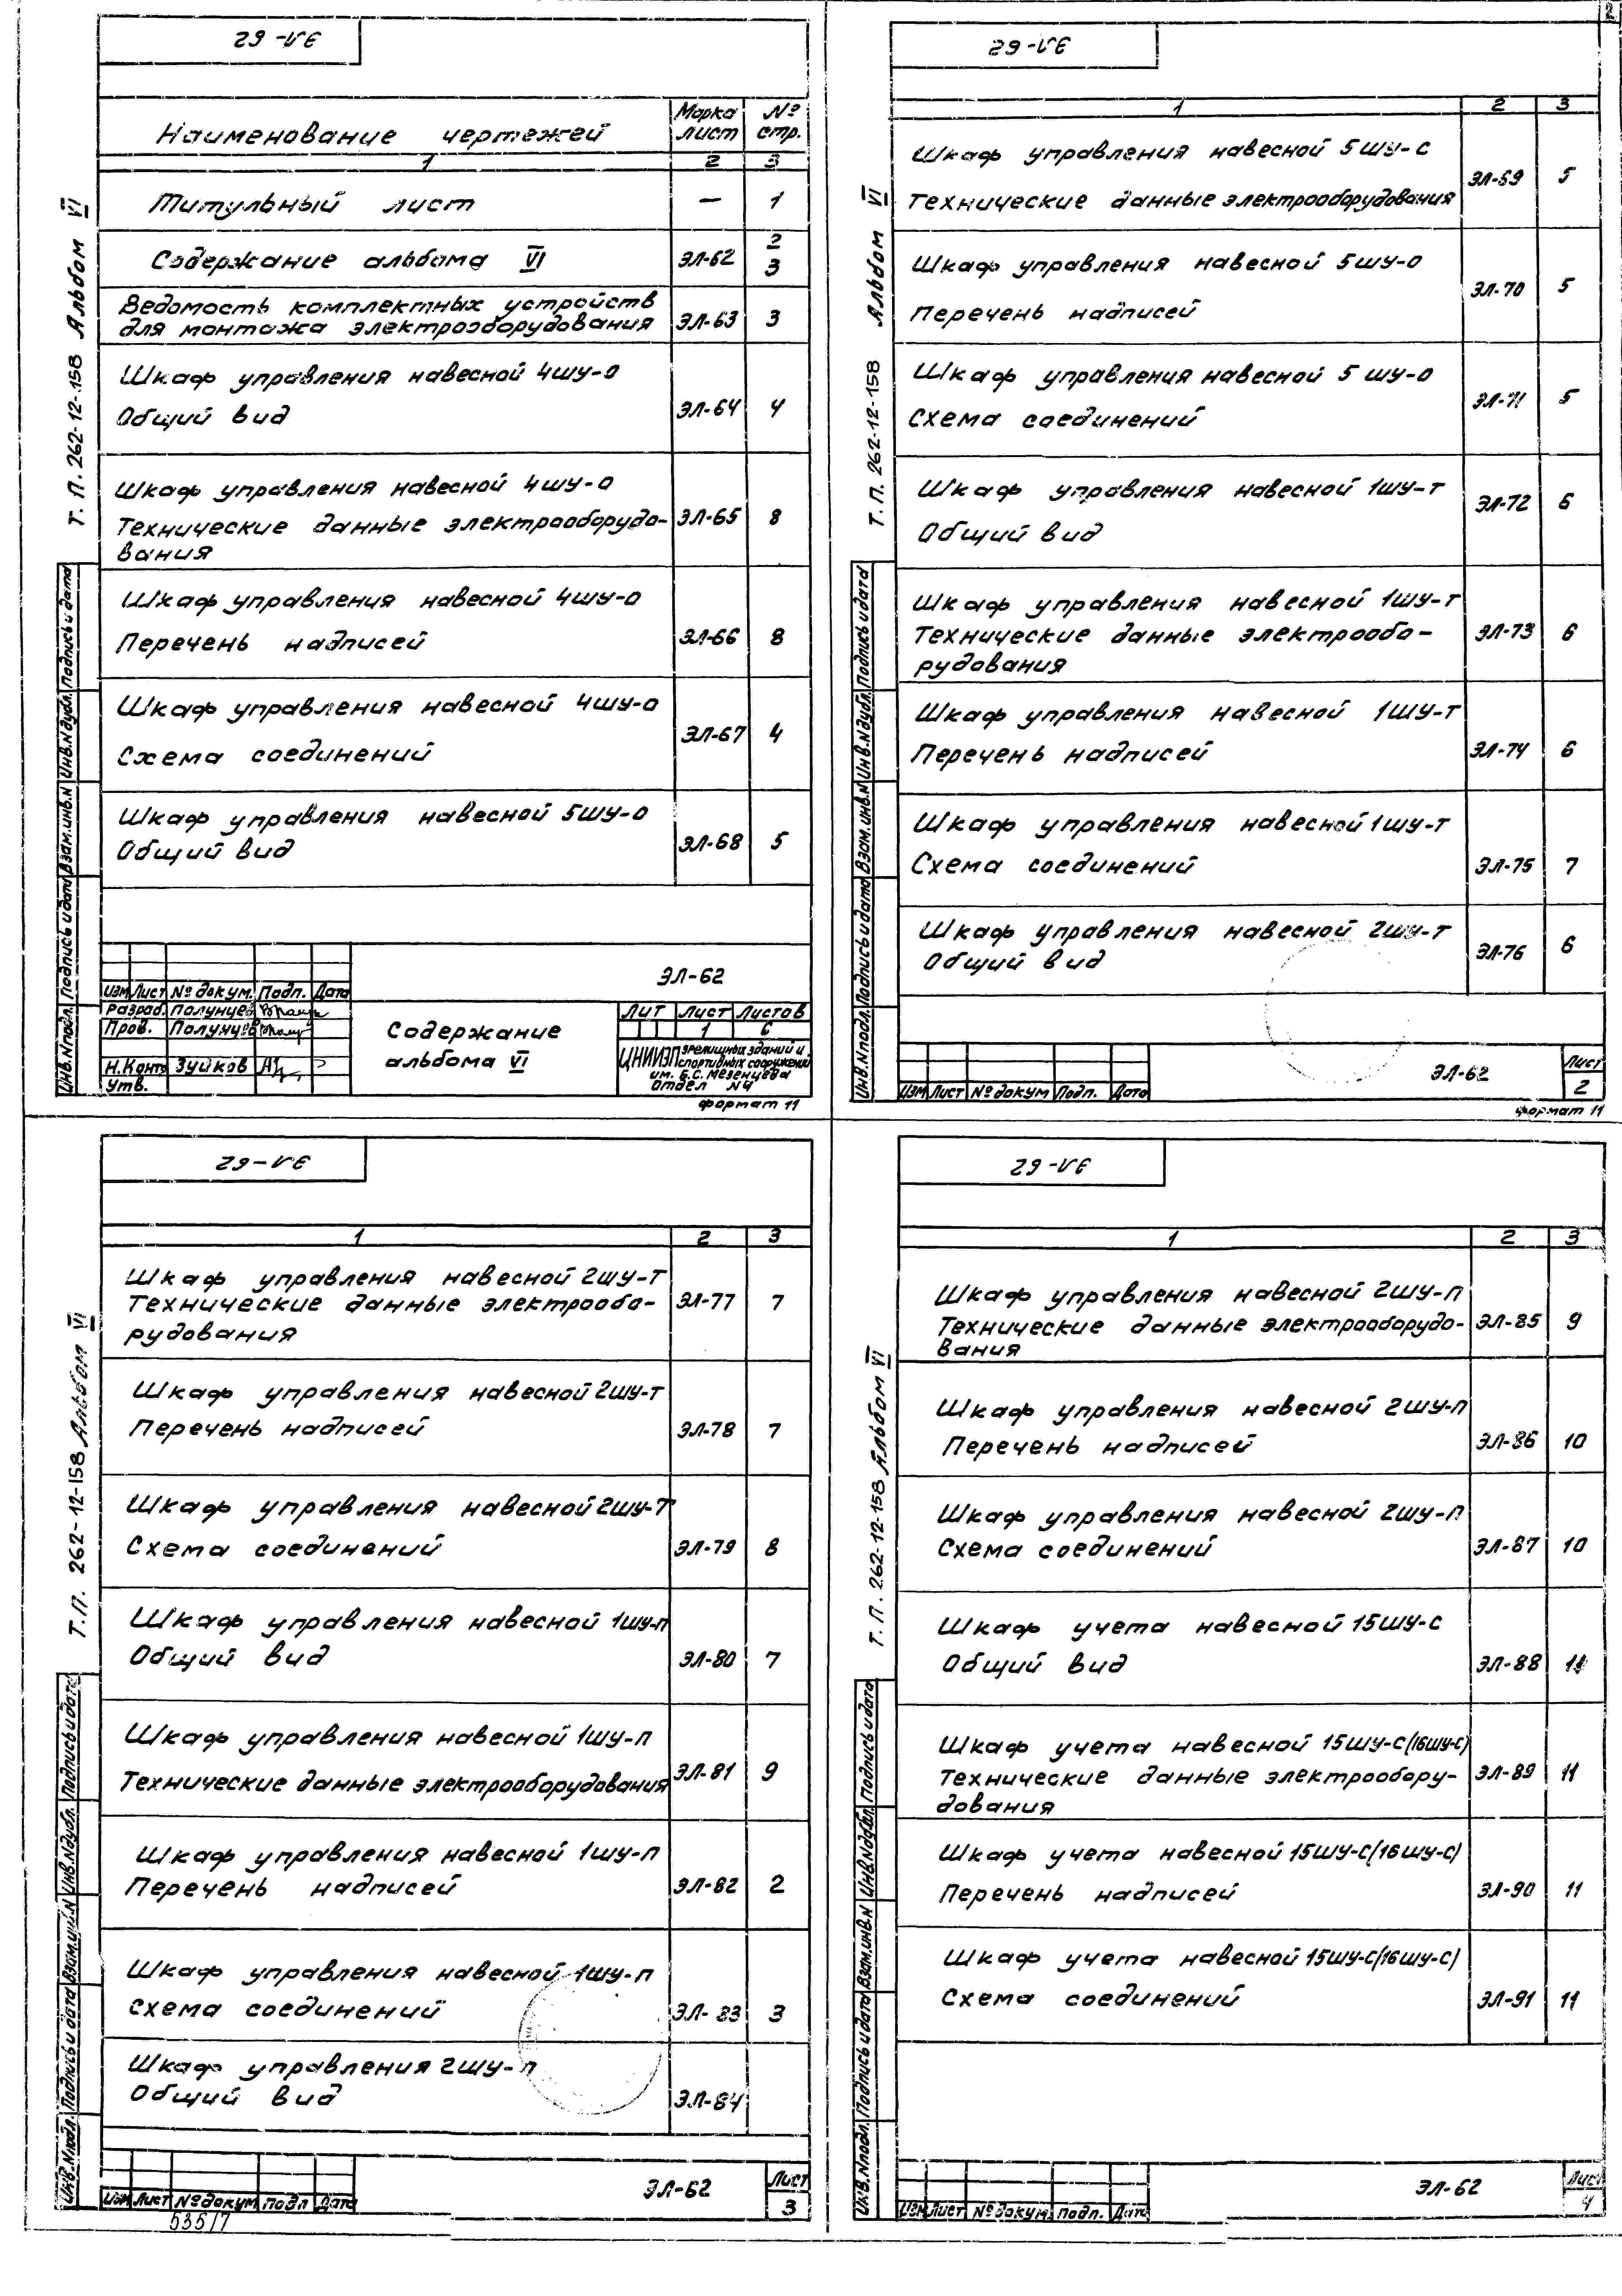 2
ЭЛ-62
Наименование чертежей
Марка лист
№ стр.
1 2 3
Титульный лист — 1
Содержание альбома VI ЭЛ-62 2 3
Ведомость комплектных устройств
для монтажа электрооборудования ЭЛ-63 3
Шкаф управления навесной 4шу-о
Общий вид ЭЛ-64 4
Шкаф управления навесной 4шу-о
Технические данные электрооборудо- ЭЛ-65 8
вания
Шкаф управления навесной 4шу-о
Перечень надписей ЭЛ-66 8
Шкаф управления навесной 4шу-о
Схема соединений ЭЛ-67 4
Шкаф управления навесной 5шу-о
Общий вид ЭЛ-68 5
Т.П. 262-12-158 Альбом VI
Инв.№подл. Подпись и дата Взам.инв.№ Инв.№дубл. Подпись и дата
Изм Лист № докум. Подп. Дата
Разраб. Полунцев
Пров. Полунцев
Н.Контр Зуйков
Утв.
ЭЛ-62
Содержание
альбома VI
Лит Лист Листов
1 6
ЦНИИЭП зрелищных зданий и
спортивных сооружений
им. Б.С. Мезенцева
Отдел №4
формат 11
ЭЛ-62
1 2 3
Шкаф управления навесной 5шу-с
Технические данные электрооборудования ЭЛ-69 5
Шкаф управления навесной 5шу-о
Перечень надписей ЭЛ-70 5
Шкаф управления навесной 5шу-о
Схема соединений ЭЛ-71 5
Шкаф управления навесной 1шу-т
Общий вид ЭЛ-72 6
Шкаф управления навесной 1шу-т
Технические данные электрообо- ЭЛ-73 6
рудования
Шкаф управления навесной 1шу-т
Перечень надписей ЭЛ-74 6
Шкаф управления навесной 1шу-т
Схема соединений ЭЛ-75 7
Шкаф управления навесной 2шу-т
Общий вид ЭЛ-76 6
Т.П. 262-12-158 Альбом VI
Инв.№подл. Подпись и дата Взам.инв.№ Инв.№дубл. Подпись и дата
Изм Лист № докум Подп. Дата
ЭЛ-62
Лист
2
формат 11
ЭЛ-62
1 2 3
Шкаф управления навесной 2шу-т
Технические данные электрообо- ЭЛ-77 7
рудования
Шкаф управления навесной 2шу-т
Перечень надписей ЭЛ-78 7
Шкаф управления навесной 2шу-т
Схема соединений ЭЛ-79 8
Шкаф управления навесной 1шу-п
Общий вид ЭЛ-80 7
Шкаф управления навесной 1шу-п
Технические данные электрооборудования ЭЛ-81 9
Шкаф управления навесной 1шу-п
Перечень надписей ЭЛ-82 2
Шкаф управления навесной 1шу-п
Схема соединений ЭЛ-83 3
Шкаф управления 2шу-п
Общий вид ЭЛ-84
Т.П. 262-12-158 Альбом VI
Инв.№подл. Подпись и дата Взам.инв.№ Инв.№дубл. Подпись и дата
Изм Лист № докум Подп Дата
ЭЛ-62
Лист
3
535/7
ЭЛ-62
1 2 3
Шкаф управления навесной 2шу-п
Технические данные электрооборудо- ЭЛ-85 9
вания
Шкаф управления навесной 2шу-п
Перечень надписей ЭЛ-86 10
Шкаф управления навесной 2шу-п
Схема соединений ЭЛ-87 10
Шкаф учета навесной 15шу-с
Общий вид ЭЛ-88 11
Шкаф учета навесной 15шу-с(16шу-с)
Технические данные электрообору- ЭЛ-89 11
дования
Шкаф учета навесной 15шу-с(16шу-с)
Перечень надписей ЭЛ-90 11
Шкаф учета навесной 15шу-с(16шу-с)
Схема соединений ЭЛ-91 11
Т.П. 262-12-158 Альбом VI
Инв.№подл. Подпись и дата Взам.инв.№ Инв.№дубл. Подпись и дата
Изм Лист № докум Подп. Дата
ЭЛ-62
Лист
4